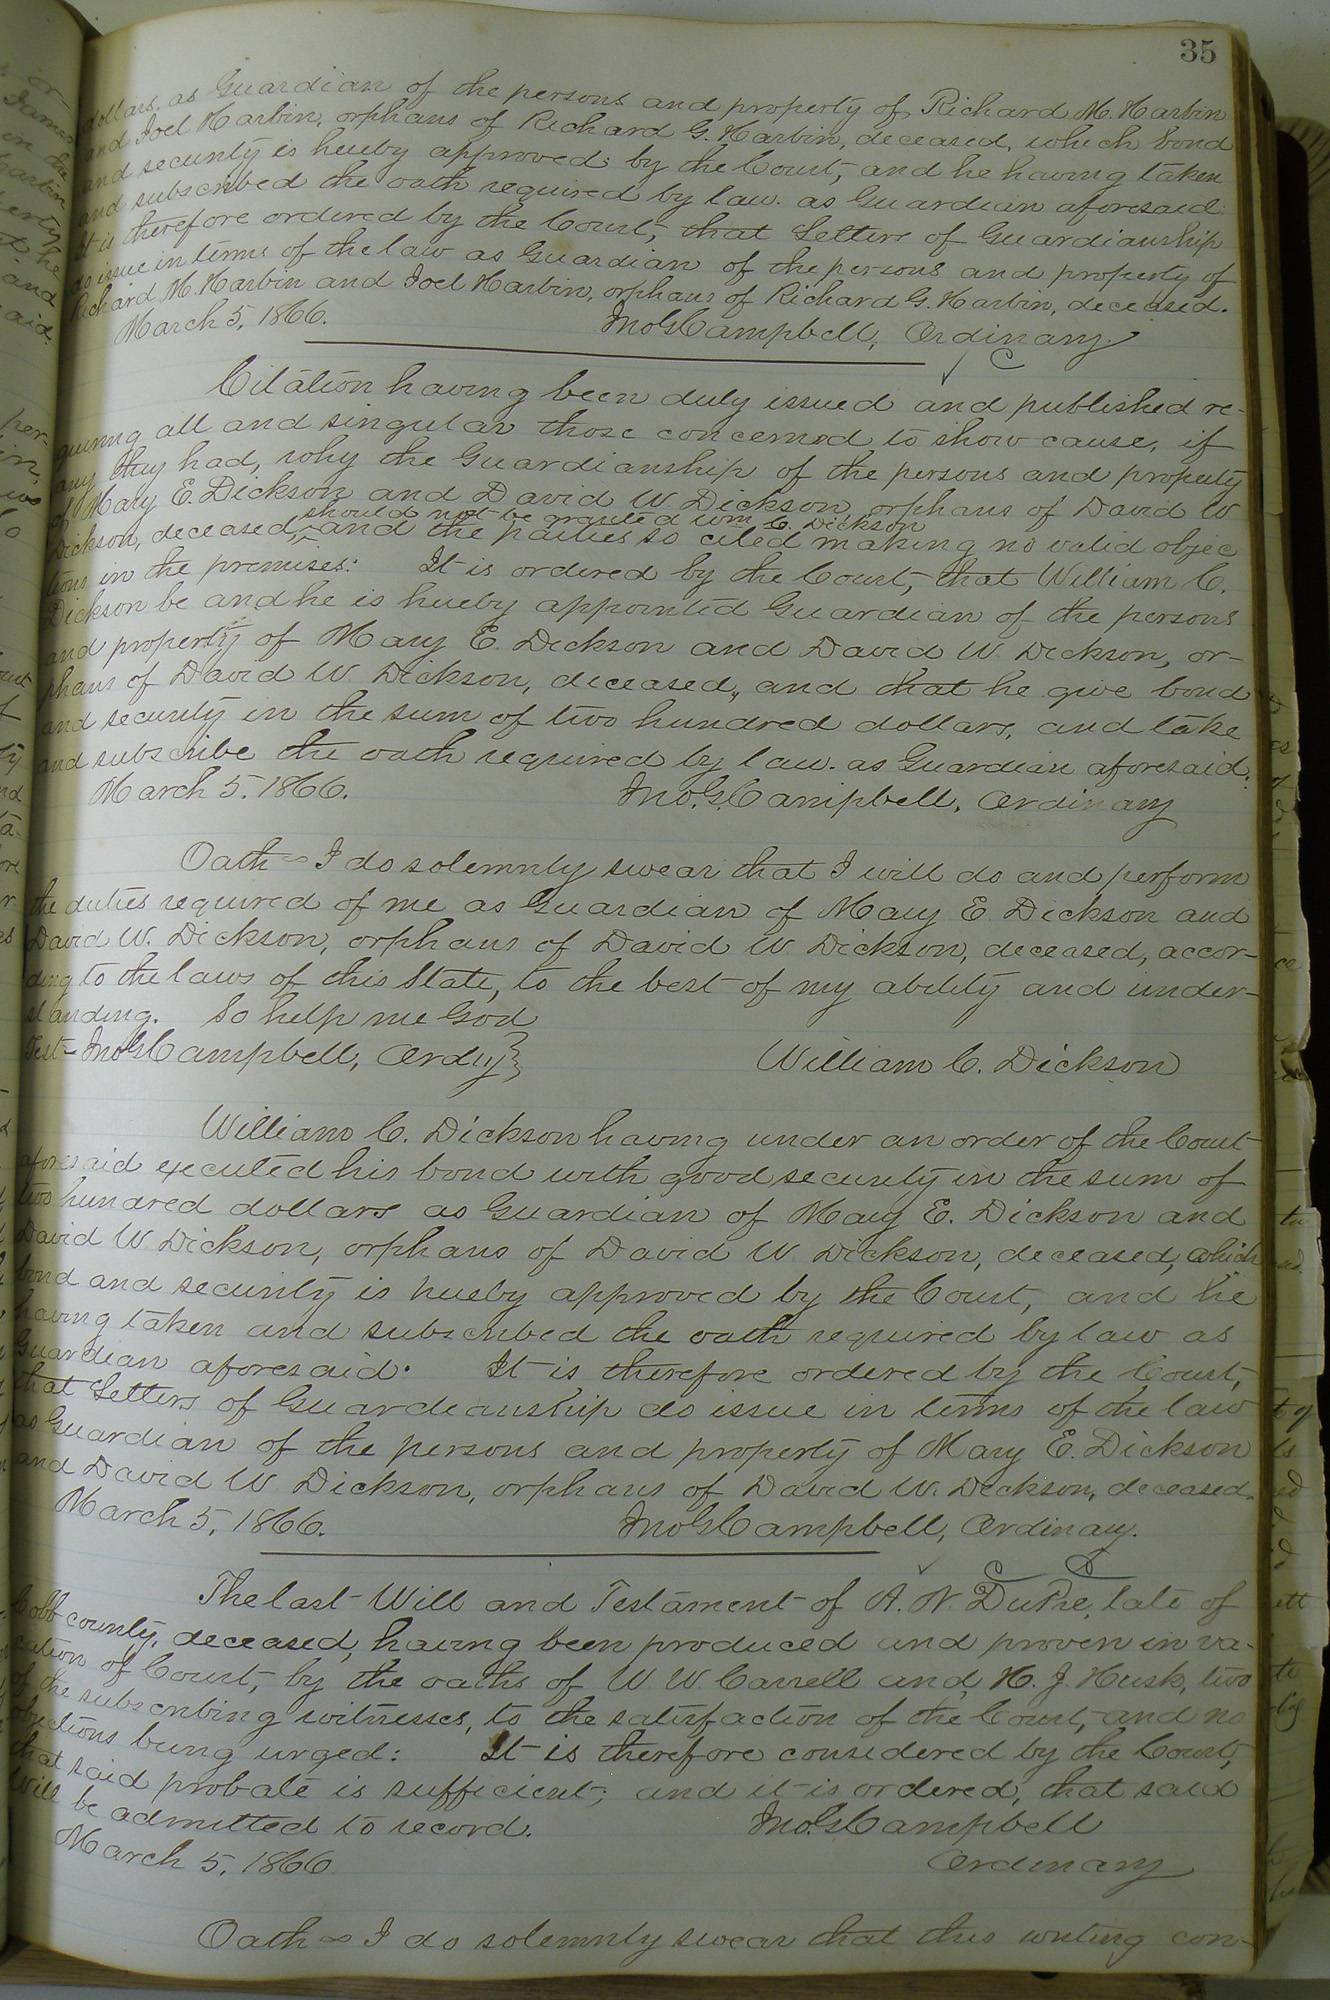 35
dollars, as Guardian of the persons and property of Richard M. Harbin
and Joel Harbin, orphans of Richard G. Harbin, deceased, which bond
and security is hereby approved by the Court, and he having taken
and subscribed the oath required by law as Guardian aforesaid:
It is therefore ordered by the Court, that Letters of Guardianship
do issue in terms of the law as Guardian of the persons and property of
Richard M. Harbin and Joel Harbin, orphans of Richard G. Harbin, deceased.
March 5, 1866. Jno G Campbell, Ordinary.
Citation having been duly issued and published re-
quiring all and singular those concerned to show cause, if
any they had, why the Guardianship of the persons and property
of Mary E. Dickson and David W. Dickson, orphans of David W
should not be granted Wm C. Dickson
Dickson, deceased, and the parties so cited making no valid objec
tions in the premises: It is ordered by the Court, that William C.
Dickson be and he is hereby appointed Guardian of the persons
and property of Mary E. Dickson and David W. Dickson, or-
phans of David W. Dickson, deceased, and that he give bond
and security in the sum of two hundred dollars, and take
and subscribe the oath required by law as Guardian aforesaid.
March 5. 1866. Jno. G. Campbell, Ordinary
Oath - I do solemnly swear that I will do and perform
the duties required of me as Guardian of Mary E Dickson and
David W. Dickson, orphans of David W. Dickson, deceased, accor-
ding to the laws of this State, to the best of my ability and under-
standing. So help me God
Test - Jno G Campbell, Ordy } William C. Dickson
William C. Dickson having under an order of the Court
aforesaid executed his bond with good security in the sum of
two hundred dollars as Guardian of Mary E. Dickson and
David W. Dickson, orphans of David W. Dickson, deceased, which
bond and security is hereby approved by the Court, and he
having taken and subscribed the oath required by law as
Guardian aforesaid. It is therefore ordered by the Court,
that Letters of Guardianship do issue in terms of the law
as Guardian of the persons and property of Mary E. Dickson
and David W Dickson, orphans of David W. Dickson, deceased.
March 5, 1866. Jno G Campbell, Ordinary.
The last Will and Testament of A. N. DuPre, late of
Cobb county, deceased, having been produced and proven in va-
cation of Court, by the oaths of W. W. Carrell and H. J. Husk, two
of the subscribing witnesses, to the satisfaction of the Court, and no
objections being urged: It is therefore considered by the Court,
that said probate is sufficient; and it is ordered, that said
Will be admitted to record. Jno. G Campbell
March 5, 1866 Ordinary
Oath - I do solemnly swear that this writing con-